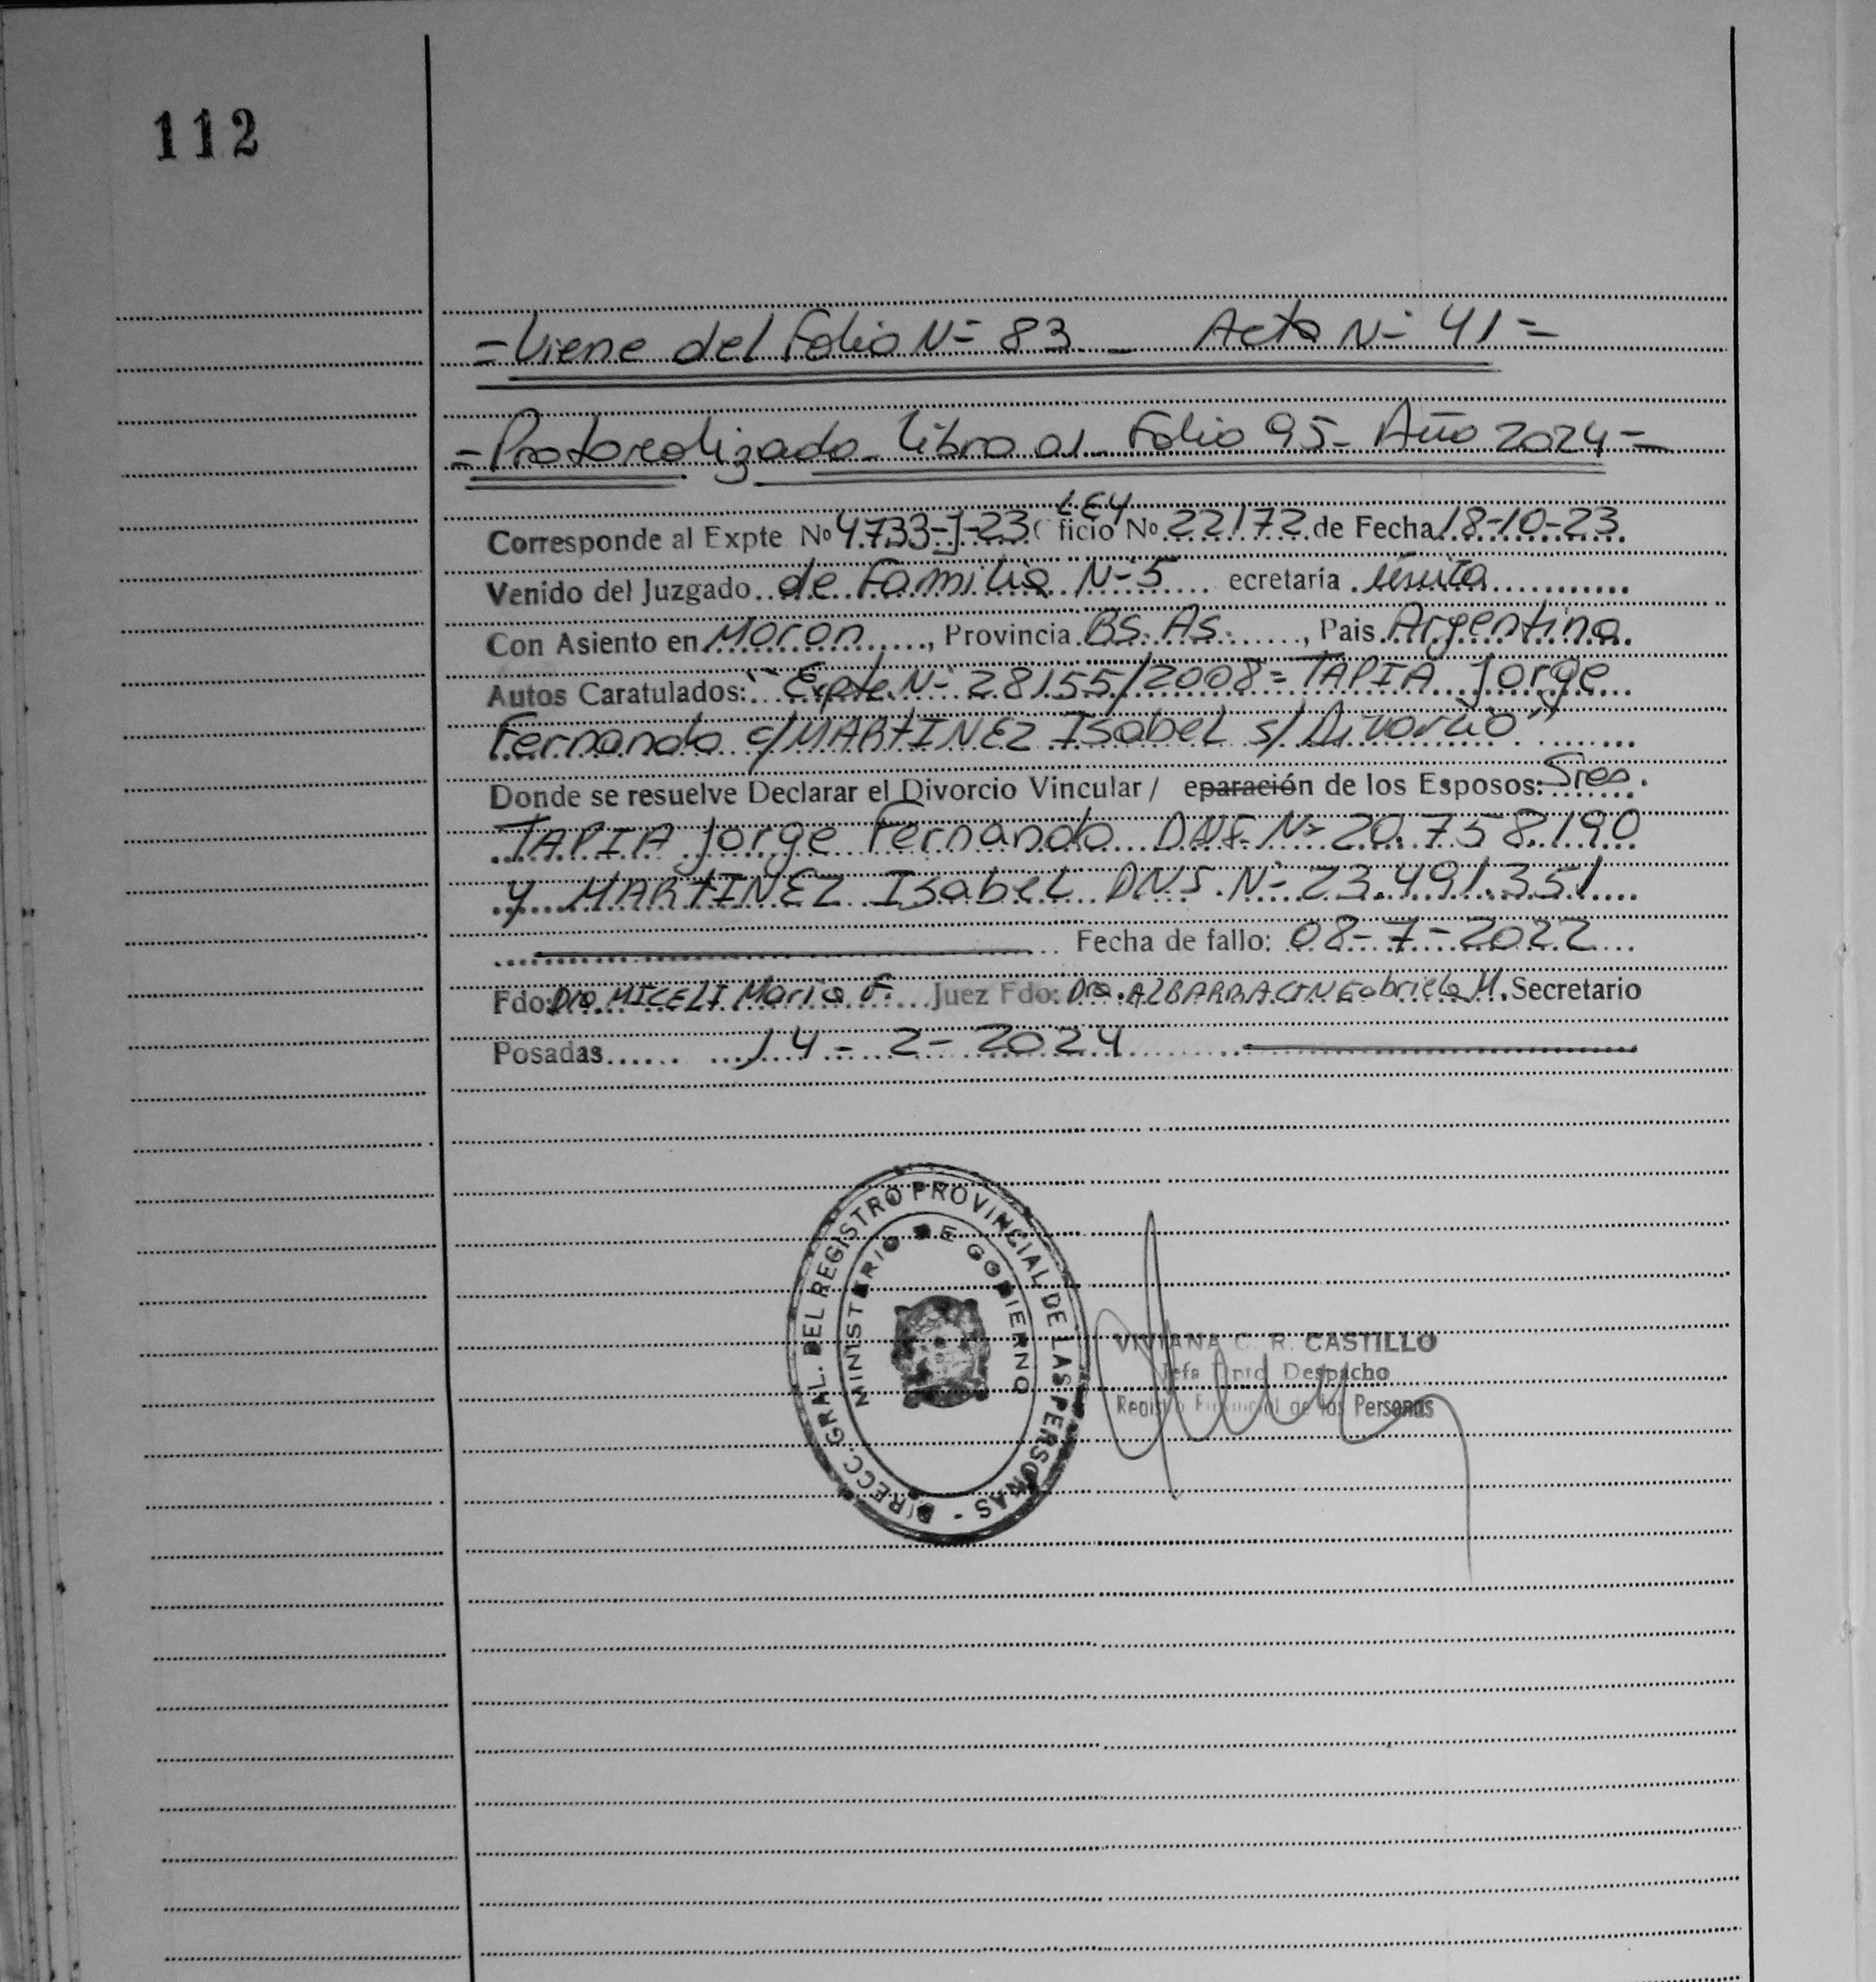 112
=Viene del Folio Nº 83_ Acta Nº 41=
=Protocolizado_Libro 01_Folio 95_Año 2024=
LEY
Corresponde al Expte Nº 4733-J-23 ficio Nº 22172 de Fecha 18-10-23
Venido del Juzgado de Familia Nº 5 ecretaría única
Con Asiento en Moron, Provincia Bs. As., Pais Argentina.
Autos Caratulados: "Expte. Nº 28155/2008=TAPIA Jorge
Fernando c/MARTINEZ Isabel s/Divorcio"
Donde se resuelve Declarar el Divorcio Vincular / eparación de los Esposos: Sres.
TAPIA Jorge Fernando DNI. Nº 20.758.190
y MARTINEZ Isabel DNI. Nº 23.491.351
Fecha de fallo: 08-7-2022
Fdo: Dra. MICELI Maria F. Juez Fdo: Dra. ALBARRACIN Gabriela M. Secretario
Posadas 14-2-2024
DIRECC. GRAL. DEL REGISTRO PROVINCIAL DE LAS PERSONAS -
MINISTERIO DE GOBIERNO
VIVIANA C. R. CASTILLO
Jefa Dpto Despacho
Registro Provincial de las Personas